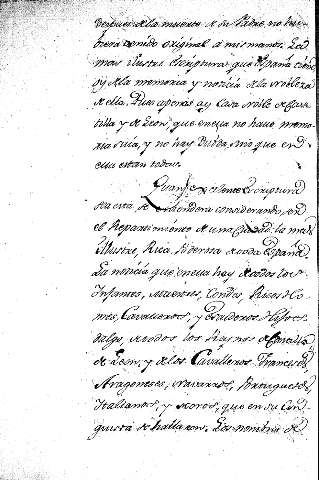 despues de la muerte de su Padre, no hu-
biera venido original a mis manos. Es la
mas Ilustre Escriptura que España tiene
oy de la memoria y noticia de la Nobleza
de ella. Pues apenas ay Casa Noble de Cas
tilla y de Leon, que en ella no have memo
ria suia, y no hay duda, sino que en
ella estan todos.
Quan excelente Escriptura
sea esta se entenderà considerando, en
el Repartimiento de una Ciudad la mas
Illustre, Rica, Hermosa de toda España
La noticia que en ella hay de todos los
Infantes, Maestres, Condes, Ricos Ho-
mes, Cavalleros, y Escuderos Hijos
dalgo, de todos los Reynos de Castilla
de Leon, y de los Cavalleros Franceses,
Aragoneses, Navarros, Portugueses
Italianos, y Moros, que en su Con
quista se hallaron. Los nombres de